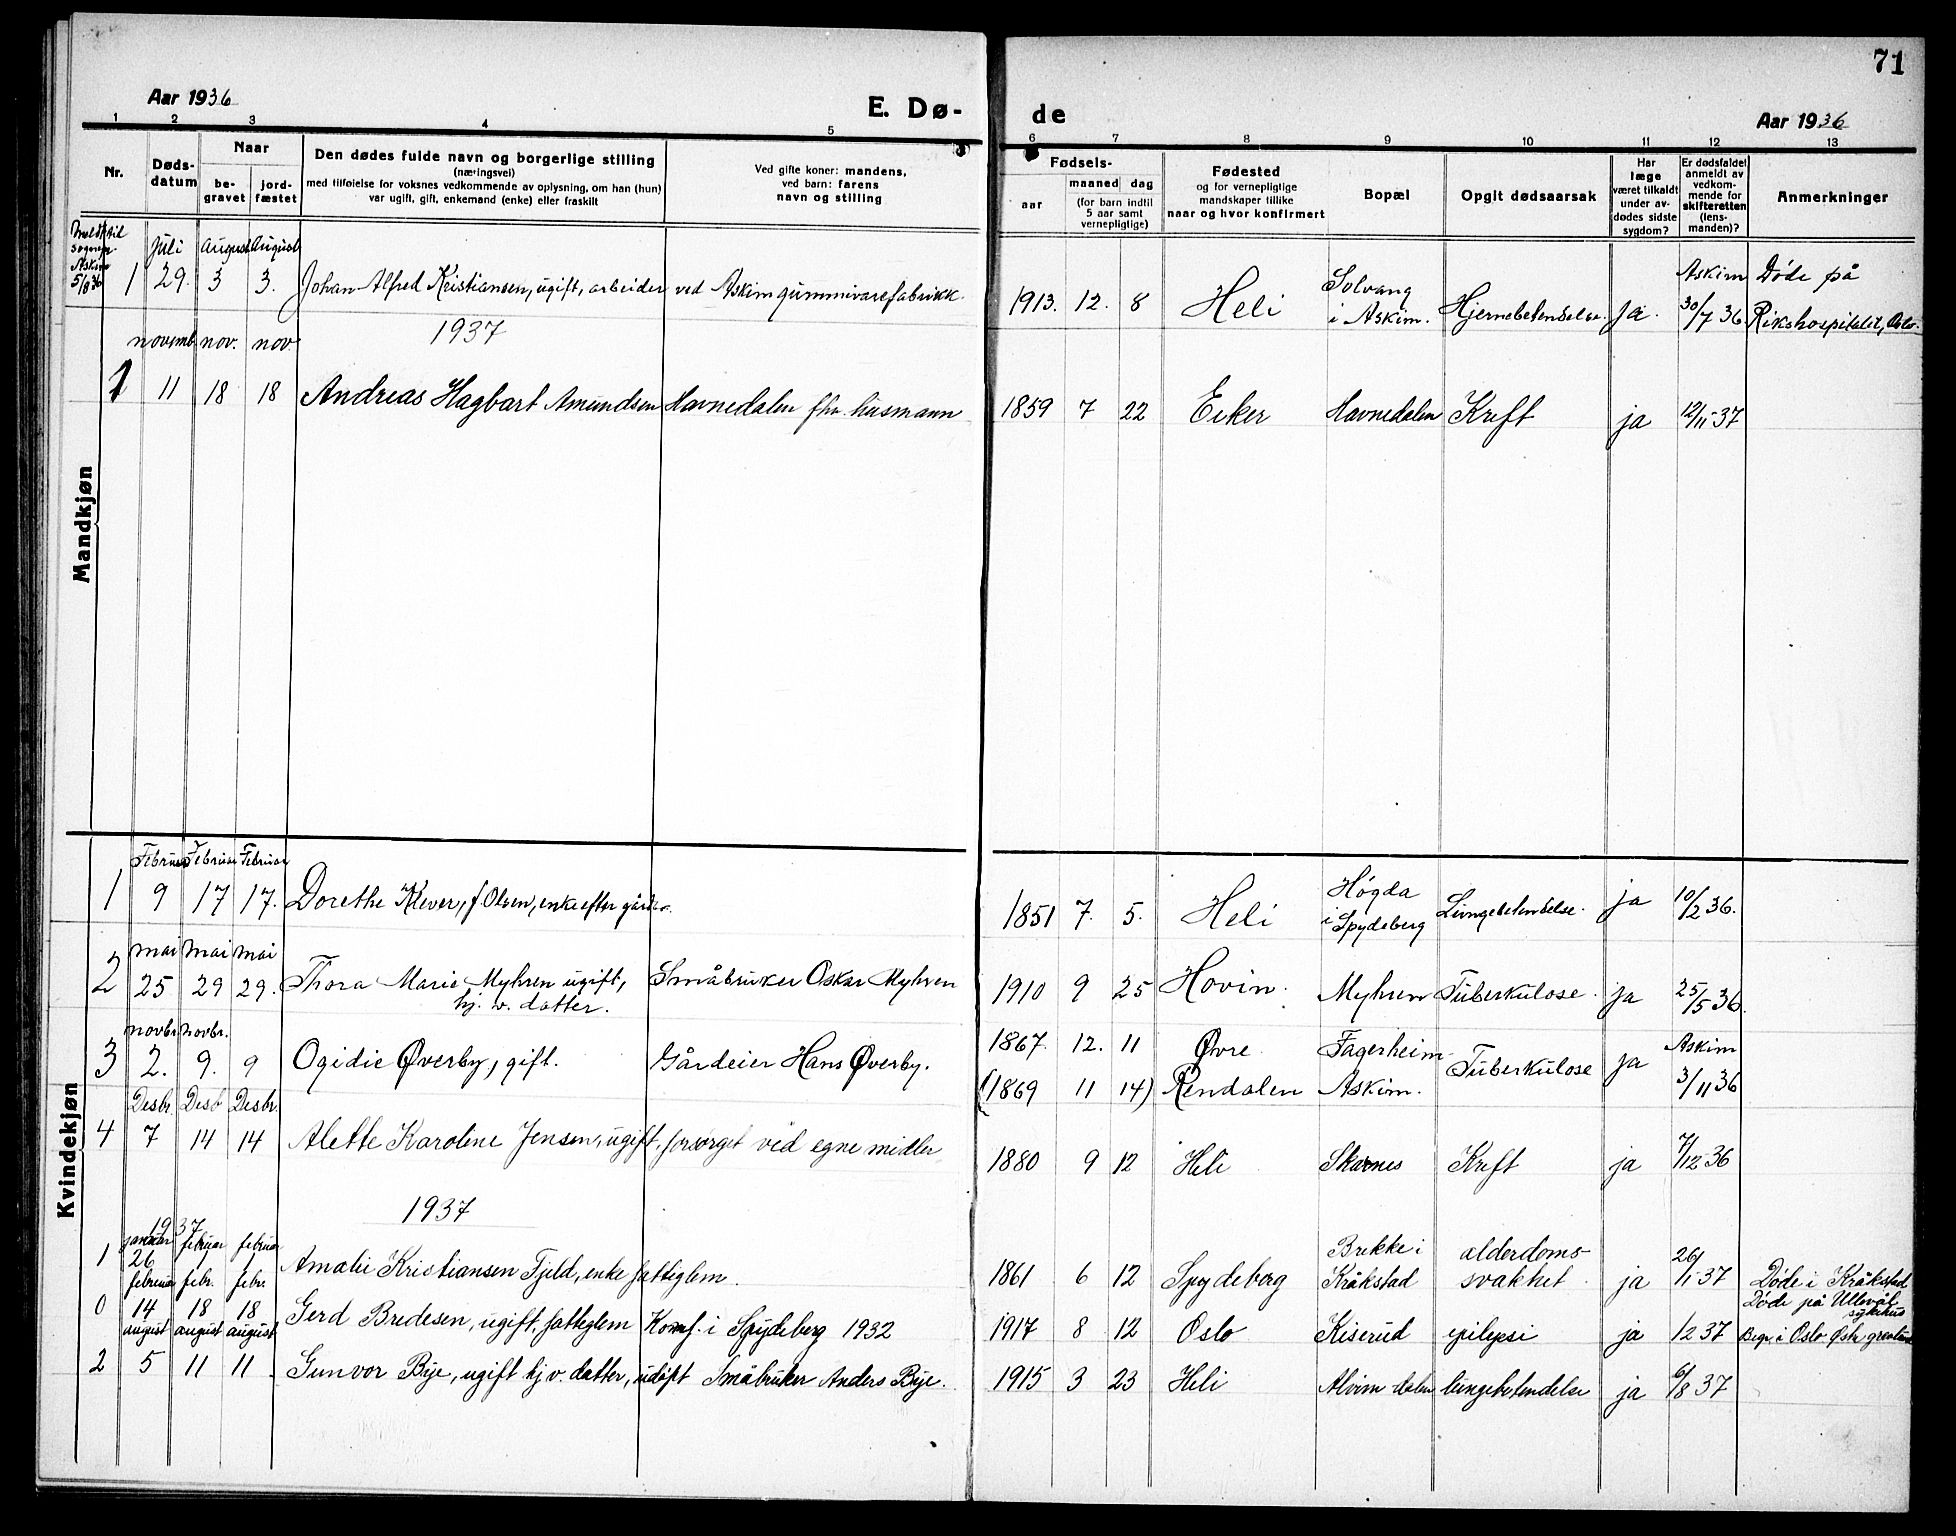 71
Aar 1936
E. Dø-
de
Aar 1936
1 2 3 4 5 6 7 8 9 10 11 12 13
Nr.
Døds-
datum
Naar
be-
gravet
jord-
fæstet
Den dødes fulde navn og borgerlige stilling
(næringsvei)
med tilføielse for voksnes vedkommende av oplysning, om han (hun)
var ugift, gift, enkemand (enke) eller fraskilt
Ved gifte koner: mandens,
ved barn: farens
navn og stilling
Fødsels-
aar
maaned dag
(for barn indtil
5 aar samt
vernepligtige)
Fødested
og for vernepligtige
mandskaper tillike
naar og hvor konfirmert
Bopæl
Opgit dødsaarsak
Har
læge
været tilkaldt
under av-
dødes sidste
sygdom?
Er dødsfaldet
anmeldt av
vedkom-
mende for
skifteretten
(lens-
manden)?
Anmerkninger
Mandkjøn
Meldt til
sognepr.
Askim
5/8 36
juli august August
1 29. 3 3. Johan Alfred Kristiansen, ugift, arbeider ved Askim gummivarefabrikk.
1913. 12. 8 Heli Solvang
i Askim. Hjernebetendelse. Ja. Askim
30/7 36 Døde på
Rikshospitalet, Oslo.
1937
novemb nov. nov.
1 11 18 18 Andreas Hagbart Amundsen Havnedalen fhv. husmann
1859 7 22 Eeker Havnedalen Kreft ja 12/11-37
Kvindekjøn
Februar Februar Februar
1 9 17 17. Dorethe Klever, f. Olsen, enke efter gårde.
1851 7. 5. Heli Høgda
i Spydeberg Lungebetendelse. ja 10/2 36.
mai mai mai
2 25 29 29. Thora Marie Myhren ugift,
hj. v. datter. Småbruker Oskar Myhren
1910 9 25 Hovin. Myhren Tuberkulose. ja 25/5 36.
novbr. novbr.
3 2. 9. 9 Ogidie Øverby, gift. Gårdeier Hans Øverby.
1867. 12. 11 Øvre Fagerheim
(1869 11 14) Rendalen Askim. Tuberkulose ja Askim
3/11 36
Desbr. Desb Desbr.
4 7 14 14 Alette Karoline Jensen, ugift, forsørget ved egne midler
1880 9 12 Heli Skarnes Kreft ja 7/12-36
1937
1937
januar februar februar
1 26 1 1 Amalie Kristiansen Fjeld, enke fattiglem.
1861 6 12 Spydeberg Brekke i
Kråkstad alderdoms-
svakhet. ja 26/1-37 Døde i Kråkstad
februar febr. febr.
0 14 18 18 Gerd Bredesen, ugift, fatteglem Konf. i Spydeberg 1932
1917 8 12 Oslo Kiserud epilepsi ja 12 37 Døde på Ullevål
sykehus
Begr. i Oslo Østr. gravlund
august august august
2 5 11 11. Gunvor Bye, ugift hj. v. datter, udøpt Småbruker Anders Bye.
1915 3 23 Heli Alvim dalen lungebetendelse ja 6/8 37